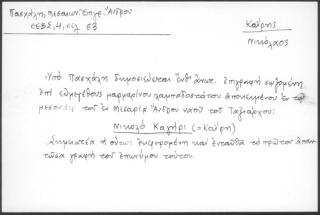 Πασχάλη, Μεσαιων. Ἐπιγρ. Ἄνδρου
ΕΕΒΣ, 4, σελ 53
Καΐρης
Νικόλαος
Ὑπὸ Πασχάλη δημοσιεύεται ἐνθ' ἀνωτ. ἐπιγραφὴ σῳζομένη
ἐπὶ εὐμεγέθους μαρμαρίνου λαμπαδοστάτου ἀποκειμένου ἐν
μεσονάῳ τοῦ ἐν Μεσαριᾷ Ἄνδρου ναοῦ τοῦ Ταξιάρχου:
Νικολό Καηρι (= Καΐρη)
Σημειωτέα ἡ οὕτως ἐκφερομένη καὶ ἐνταῦθα τὸ πρῶτον ἀπαν-
τῶσα γραφὴ τοῦ ἐπωνύμου τούτου.